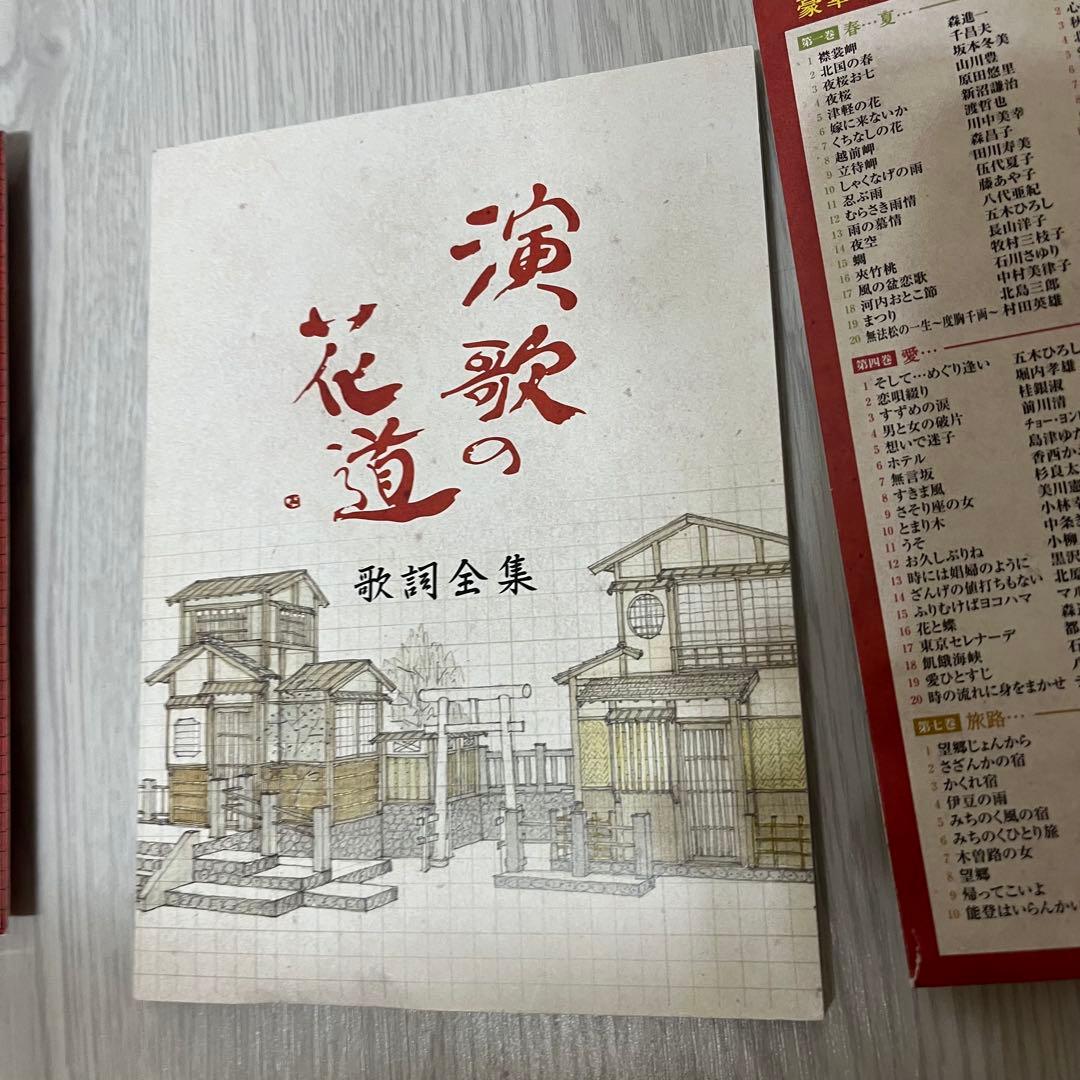 演歌の
花道
歌詞全集
第一巻 春…夏…
1 襟裳岬 森進一
2 北国の春 千昌夫
3 夜桜お七 坂本冬美
4 夜桜 山川豊
5 津軽の花 原田悠里
6 嫁に来ないか 新沼謙治
7 くちなしの花 渡哲也
8 越前岬 川中美幸
9 立待岬 森昌子
10 しゃくなげの雨 田川寿美
11 忍ぶ雨 伍代夏子
12 むらさき雨情 藤あや子
13 雨の慕情 八代亜紀
14 夜空 五木ひろし
15 蜩 長山洋子
16 夾竹桃 牧村三枝子
17 風の盆恋歌 石川さゆり
18 河内おとこ節 中村美律子
19 まつり 北島三郎
20 無法松の一生～度胸千両～ 村田英雄
第四巻 愛…
1 そして…めぐり逢い 五木ひろし
2 恋唄綴り 堀内孝雄
3 すずめの涙 桂銀淑
4 男と女の破片 前川清
5 想いで迷子 チョー・ヨン
6 ホテル 島津ゆた
7 無言坂 香西か
8 すきま風 杉良太
9 さそり座の女 美川憲
10 とまり木 小林幸
11 うそ 中条
12 お久しぶりね 小柳
13 時には娼婦のように 黒沢
14 ざんげの値打ちもない 北原
15 ふりむけばヨコハマ マル
16 花と蝶 森
17 東京セレナーデ 都
18 飢餓海峡 石
19 愛ひとすじ 八
20 時の流れに身をまかせ テ
第七巻 旅路…
1 望郷じょんから
2 さざんかの宿
3 かくれ宿
4 伊豆の雨
5 みちのく風の宿
6 みちのくひとり旅
7 木曽路の女
8 望郷
9 帰ってこいよ
10 能登はいらんかい